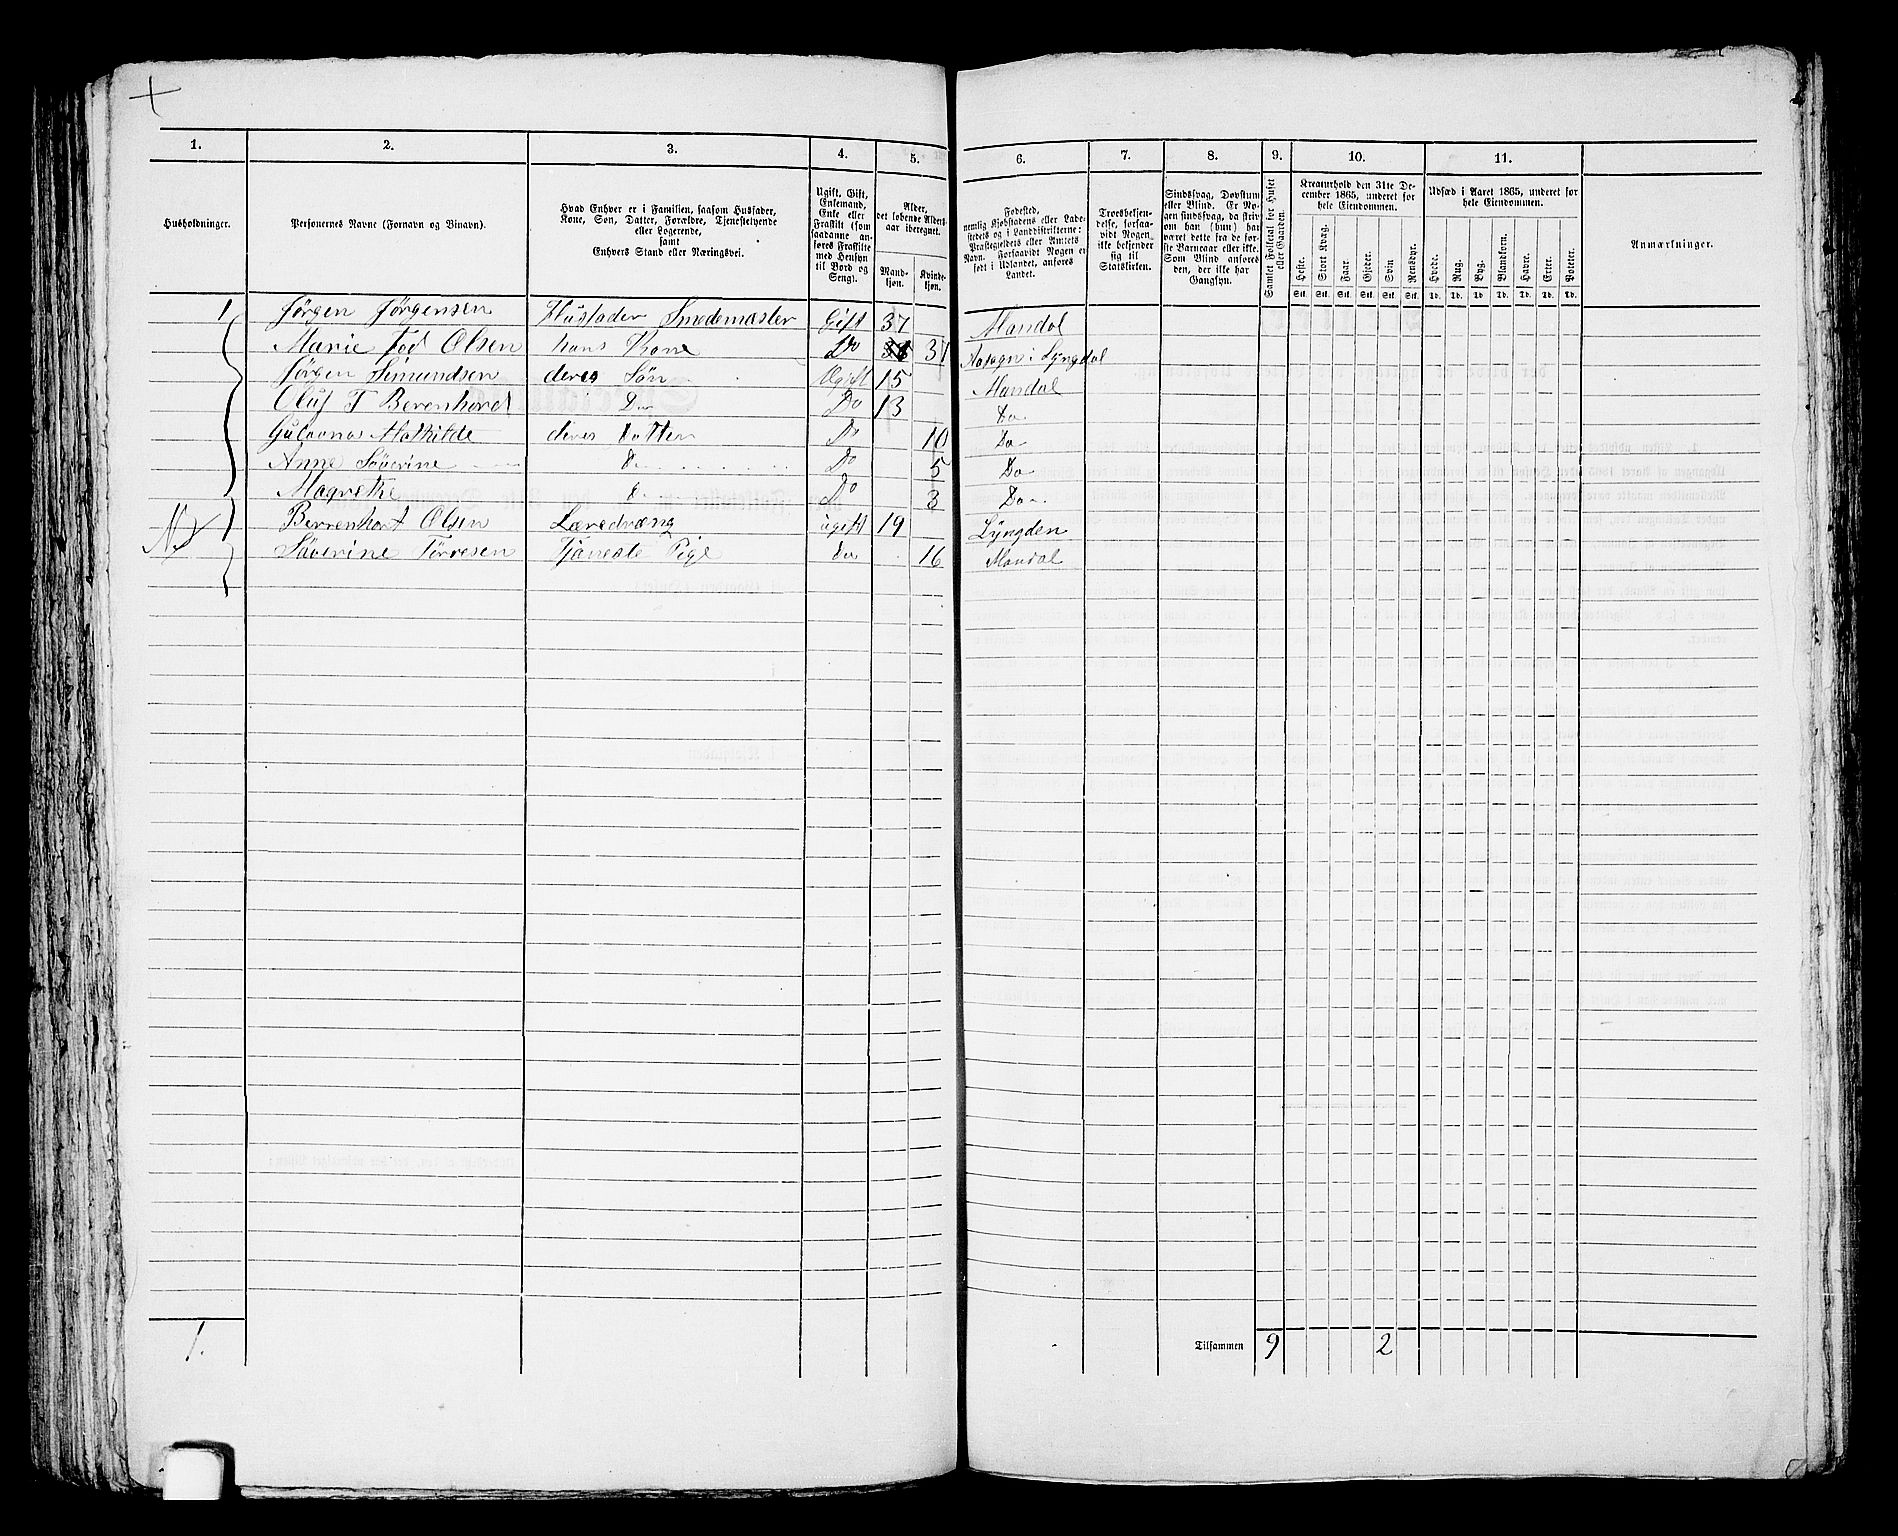 1. 2. 3. 4. 5. 6. 7. 8. 9. 10. 11.
Husholdninger.
Personernes Navne (Fornavn og Binavn).
Hvad Enhver er i Familien, saasom Husfader,
Kone, Søn, Datter, Forældre, Tjenestetyende
eller Logerende,
samt
Enhvers Stand eller Næringsvei.
Ugift, Gift,
Enkemand,
Enke eller
Fraskilt (som
saadanne an-
føres Fraskilte
med Hensyn
til Bord og
Seng).
Alder,
det løbende Alders-
aar iberegnet.
Mand-
kjøn.
Kvinde-
kjøn.
Fødested,
nemlig Kjøbstadens eller Lade-
stedets og i Landdistrikterne:
Præstegjeldets eller Amtets
Navn. Forsaavidt Nogen er
født i Udlandet, anføres
Landet.
Troesbekjen-
delse, forsaa-
vidt Nogen
ikke bekjender
sig til
Statskirken.
Sindssvag, Døvstum
eller Blind. Er No-
gen sindssvag, da skriv
om han (hun) har
været dette fra de før-
ste Barneaar eller ikke.
Som Blind anføres
den, der ikke har
Gangsyn.
Samlet Folketal for Huset
eller Gaarden.
Kreaturhold den 31te De-
cember 1865, underet for
hele Eiendommen.
Heste. Stort Kvæg. Faar. Gjeder. Svin Rensdyr.
Stk. Stk. Stk. Stk. Stk. Stk.
Udsæd i Aaret 1865, underet for
hele Eiendommen.
Hvede. Rug. Byg. Blandkorn. Havre. Erter. Poteter.
Td. Td. Td. Td. Td. Td. Td.
Anmærkninger.
1 Jørgen Jørgensen Husfader Smedemæster Gift 37 Mandal
Marie Tod Olsen hans Kone Do 37 i Lyngdal
Jørgen Simundsen deres Søn Ugift 15 Mandal
Oluf T Berenhard Do Do 13 Do
Mathilde deres Datter Do 10 Do
Anne Såverine Do Do 5 Do
Magrethe Do Do 3 Do
Berrenhart Olsen Læredræng ugift 19 Lyngden
Såverine Tørresen Tjäneste Pige Do 16 Mandal
1.
Tilsammen 9 2